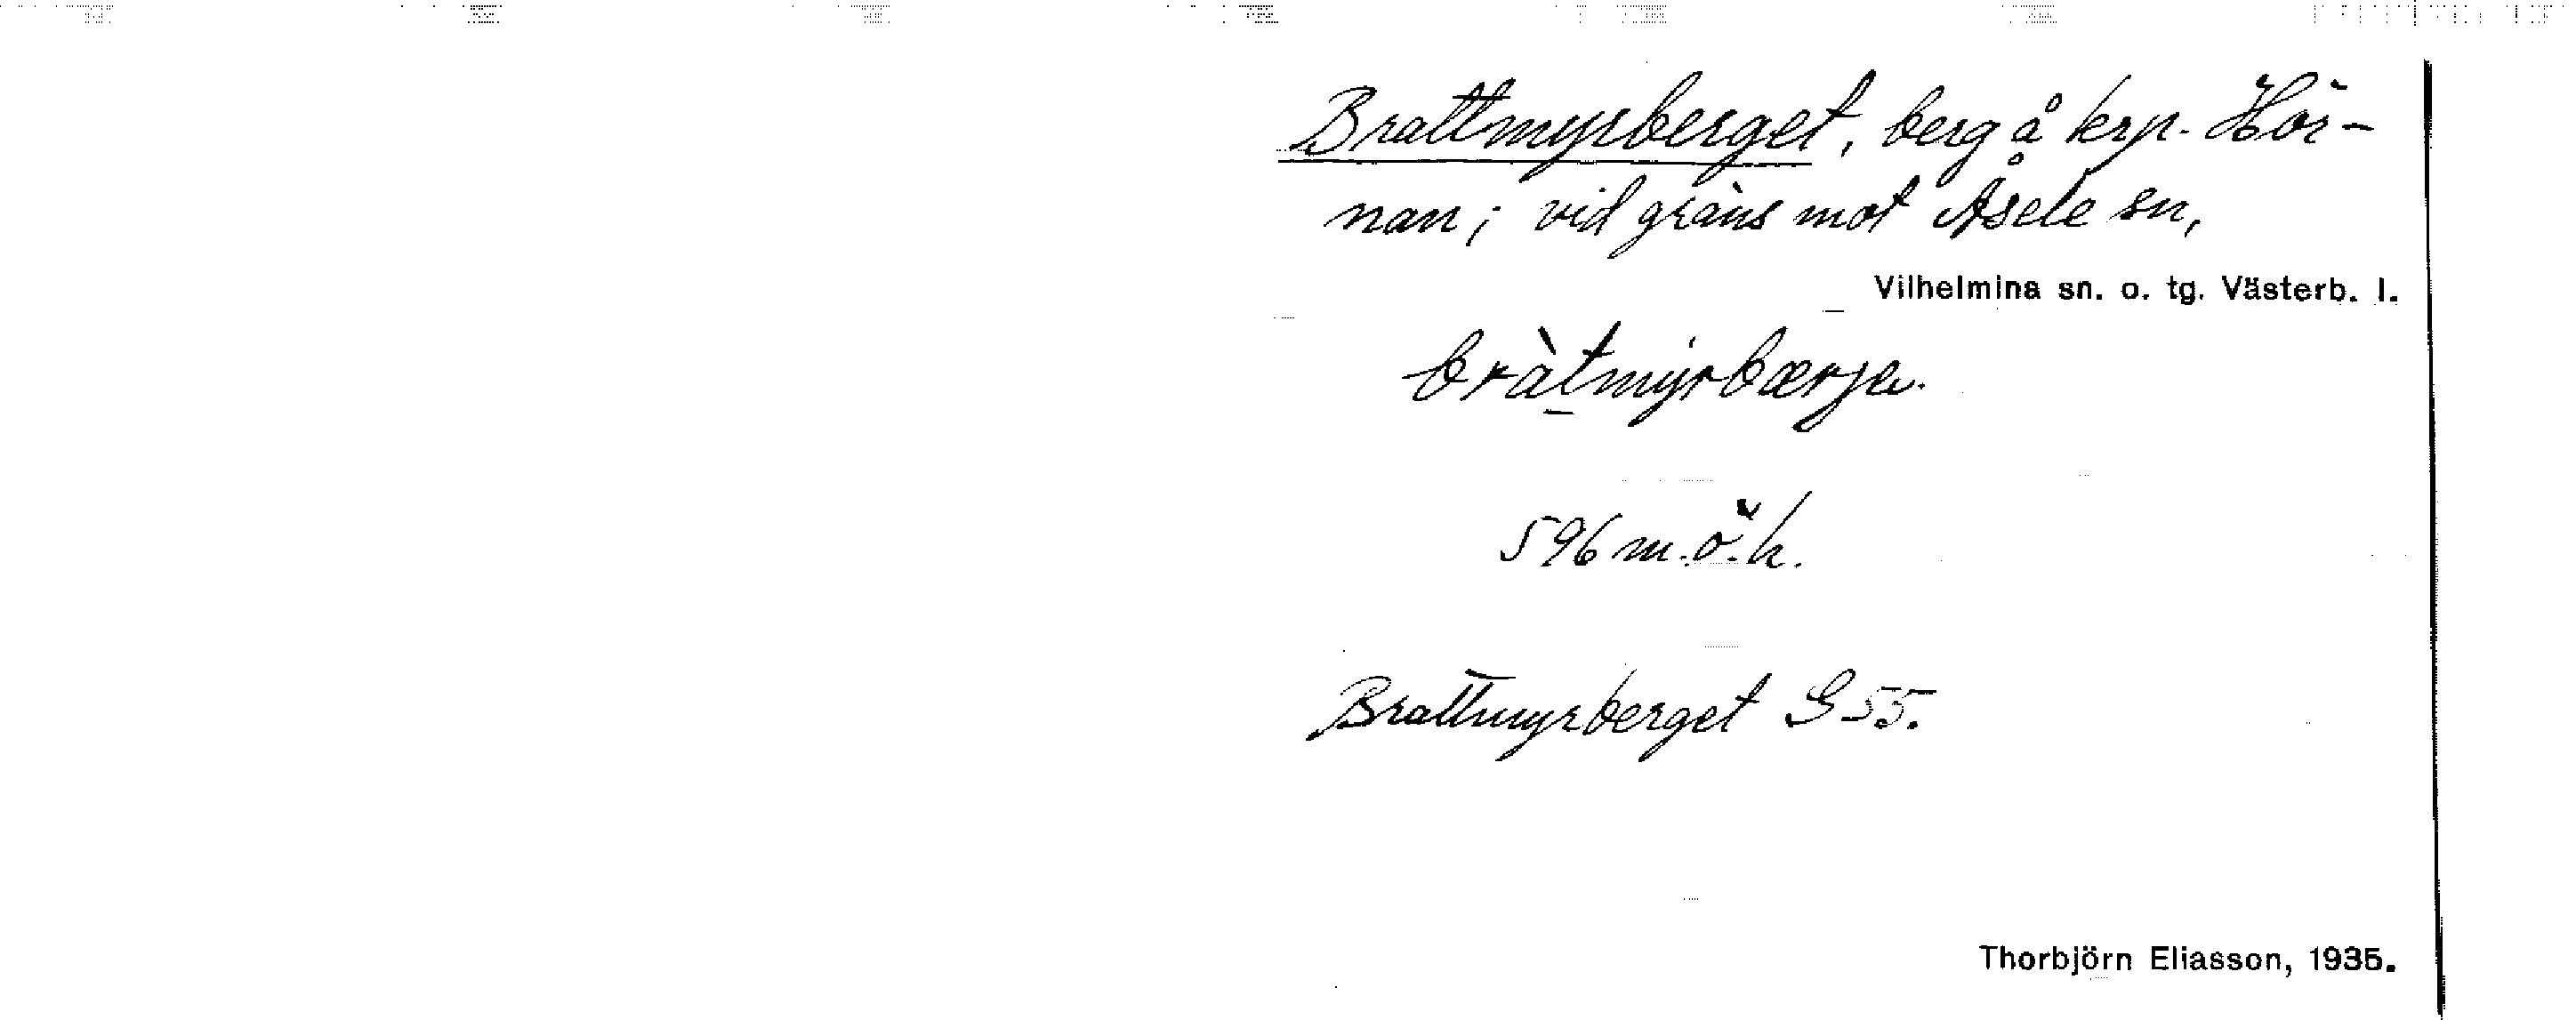 Brattmyrberget, berg å krp. Hör-
nan; vid gräns mot Åsele sn,
Vilhelmina sn. o. tg. Västerb. l.
bràt̲myrbærje.
596 m.ö.h.
Brattmyrberget G 55.
Thorbjörn Eliasson, 1935.